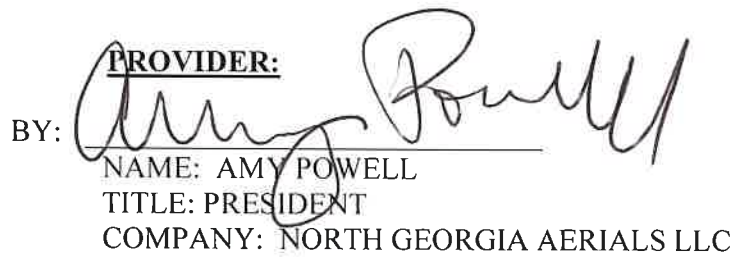 PROVIDER:
BY: Amy Powell
NAME: AMY POWELL
TITLE: PRESIDENT
COMPANY: NORTH GEORGIA AERIALS LLC